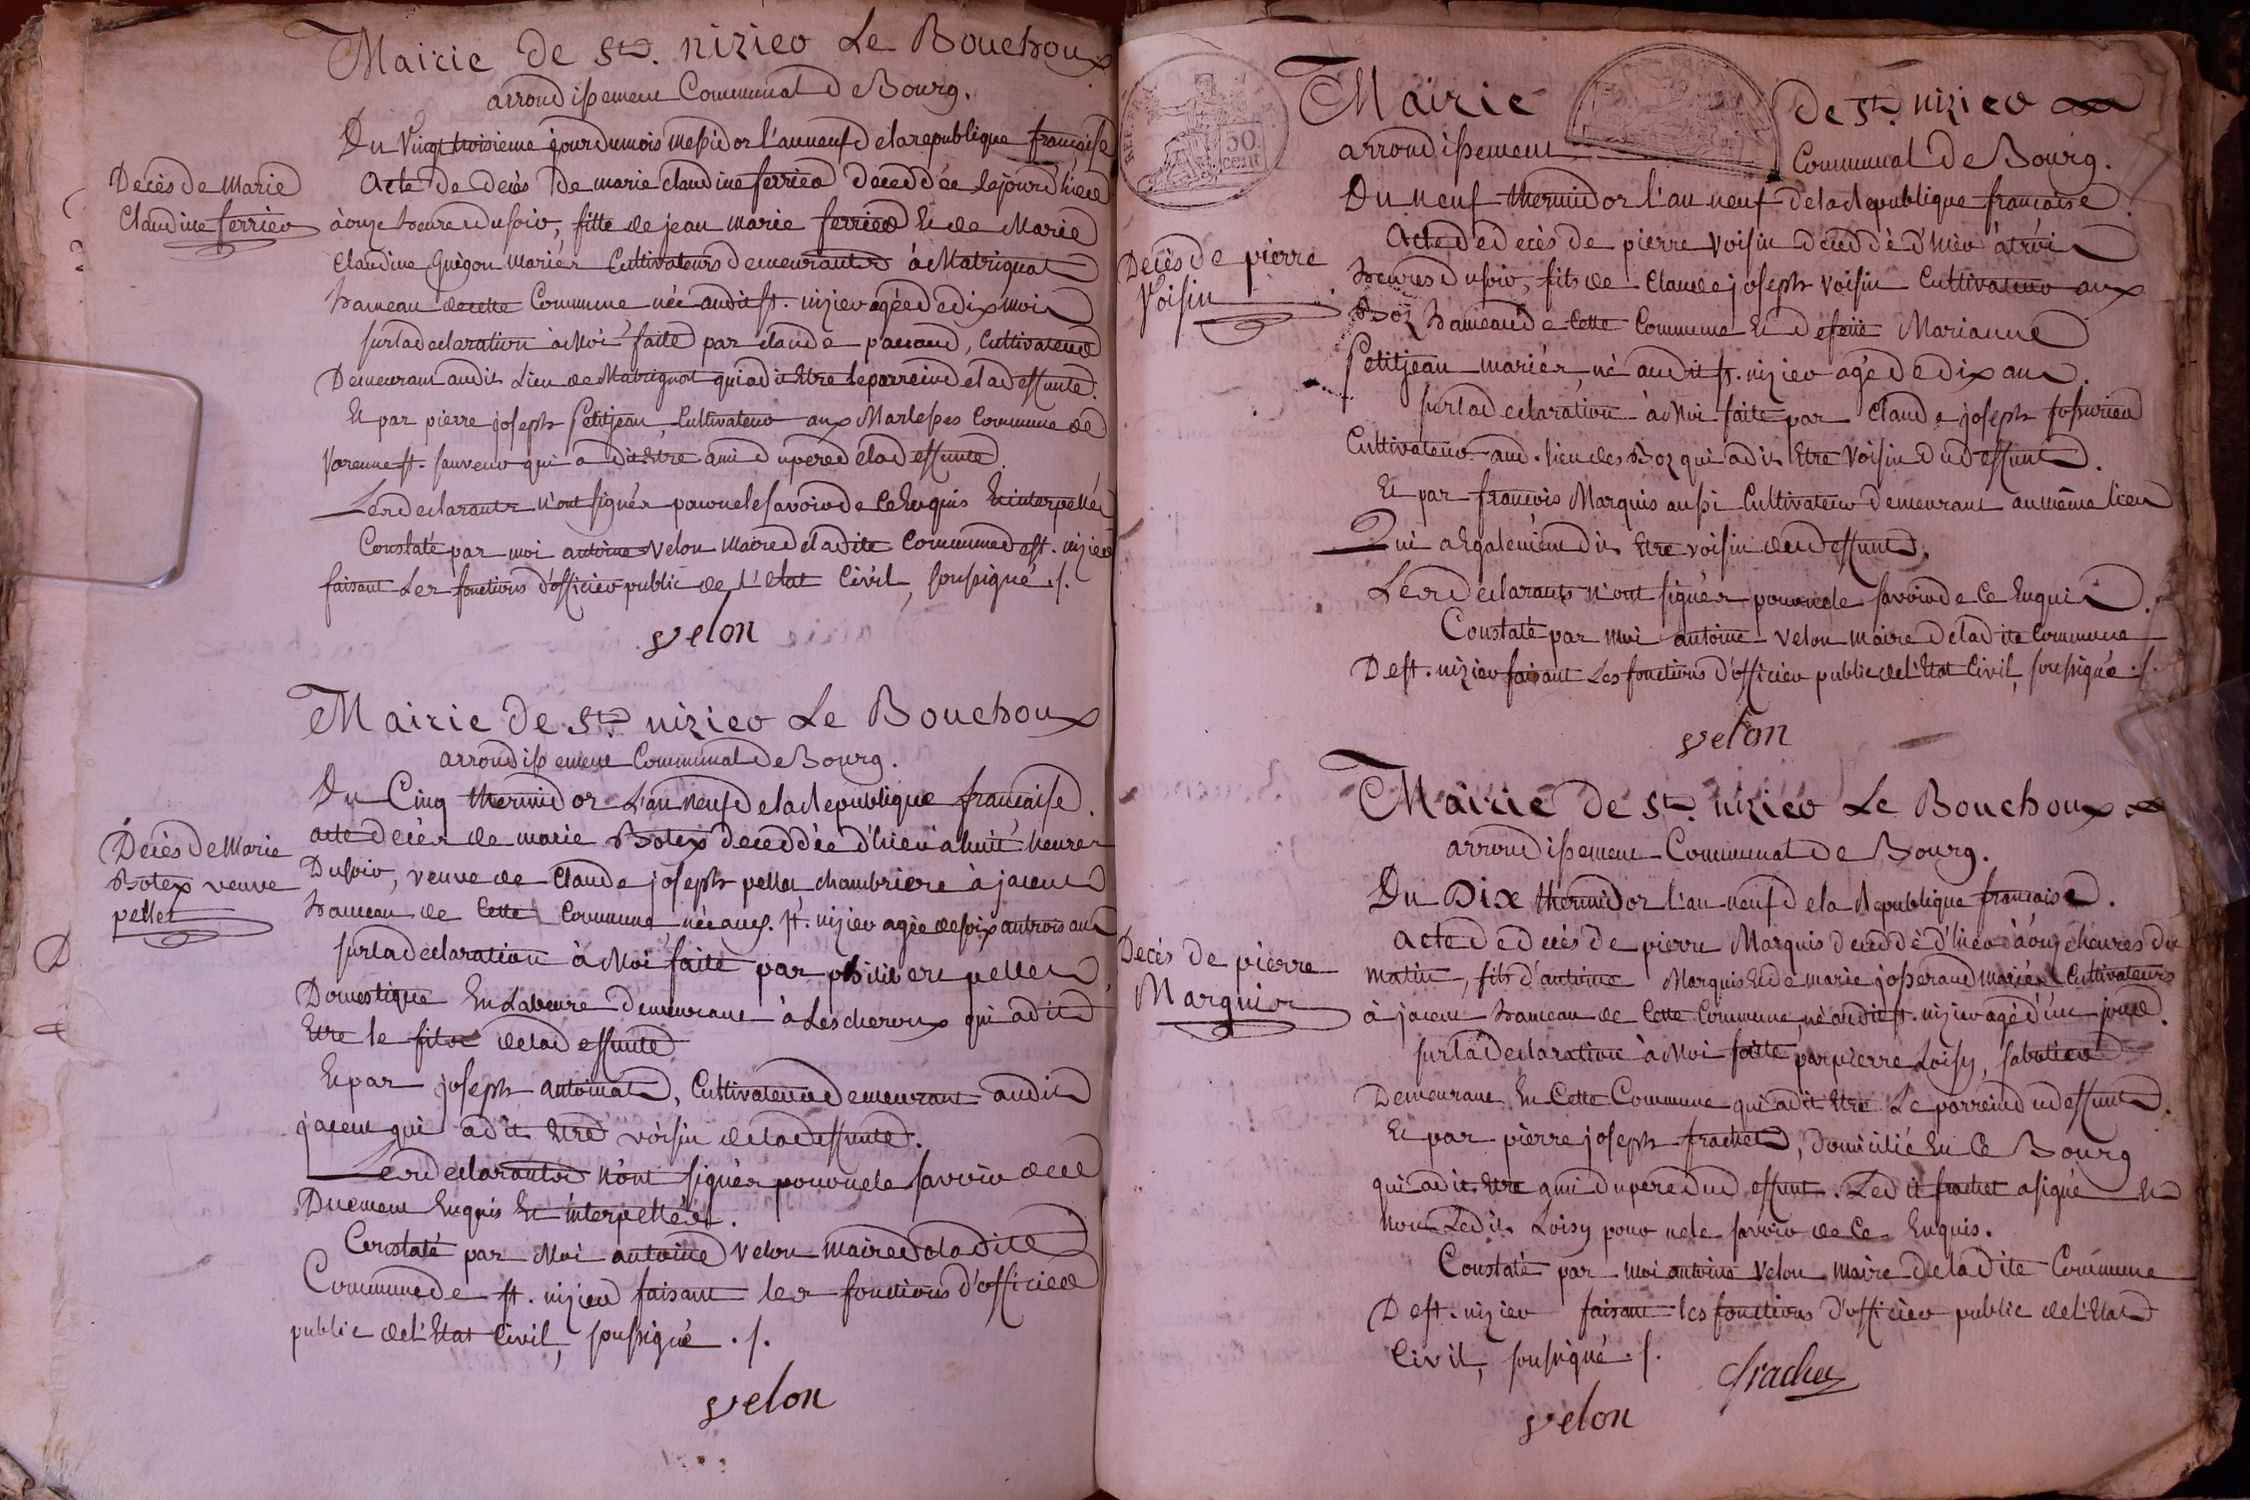 Mairie de St. nizier Le Bouchoux
arrondissement Communal de Bourg.
Du Vingt troisieme jour du mois messidor l'an neuf de la republique française
Decès de Marie
Claudine ferrier
Acte de decès de marie claudine ferrier decedée le jour d'hier
à onze heure du soir, fille de jean marie ferrier Et de Marie
Claudine Guegon mariés Cultivateurs demeurants à Matrignat
hameau de cette Commune née audit st. nizier agée de dix mois
sur la declaration à Moi faite par claude pauaud, Cultivateur
Demeurant audit Lieu de Matrignat qui a dit Etre le parrein de la deffunte.
Et par pierre joseph Petitjean, Cultivateur aux Marlesses Commune de
Varenne st. sauveur qui a dit Etre ami du pere de la deffunte.
Les declarants n'ont signés pour ne le savoir de ce Enquis Et interpellés
Constaté par moi antoine Velon Maire de la dite Commune de st. nizier
faisant Les fonctions d'officier public de l'Etat Civil, soussigné ./.
velon
Mairie de St. nizier Le Bouchoux
arrondissement Communal de Bourg.
Du Cinq thermidor L'an neuf de la republique française.
Decès de Marie
Botex veuve
pellet
acte decès de marie Botex decedée d'hier à huit heures
Du soir, veuve de Claude joseph pellet chambriere à jacent
hameau de Cette Commune née aud. st. nizier agée de soixante trois ans
sur la declaration à Moi faite par philibert pellet
Domestique En Labeure demeurant à Lescheroux qui a dit
Etre le fils de la deffunte
Et par joseph antoinat, Cultivateur demeurant audit
jacent qui a dit Etre voisin de la deffunte.
Les declarants n'ont signés pour ne le savoir de ce
Duement Enquis Et interpellés.
Constaté par Moi antoine Velon maire de la dite
Commune de st. nizier faisant les fonctions d'officier
public de l'Etat Civil, soussigné ./.
velon
Mairie de St. nizier
arrondissement Communal de Bourg.
50
cent
Du neuf thermidor l'an neuf de la republique francaise.
Decès de pierre
Voisin
Acte de decès de pierre Voisin decedé d'hier à trois
heures du soir, fils de Claude joseph Voisin Cultivateur aux
Boz hameau de Cette Commune Et de feüe Marianne
Petitjean mariés, né audit st. nizier agé de dix ans.
sur la declaration à Moi faite par Claude joseph fossurier
Cultivateur aud. lieu des Boz qui a dit Etre Voisin du deffunt.
Et par francois Marquis aussi Cultivateur demeurant au même lieu
Qui a Egalement dit Etre voisin du deffunt.
Les declarants n'ont signés pour ne le savoir de ce Enquis.
Constaté par Moi antoine Velon maire de la dite Commune
De st. nizier faisant Les fonctions d'officier public de l'Etat Civil, soussigné ./.
velon
Mairie de St. nizier Le Bouchoux
arrondissement Communal de Bourg.
Du Dix thermidor l'an neuf de la Republique francaise.
Decès de pierre
Marquis
Acte de decès de pierre Marquis decedé d'hier à onze heures du
matin, fils d'antoine Marquis Et de marie josserand mariés Cultivateurs
à jacent hameau de Cette Commune, né audit st. nizier agé d'un jour.
sur la declaration à Moi faite par pierre Loisy, sabotier
Demeurant En Cette Commune qui a dit Etre Le parrein du deffunt.
Et par pierre joseph frachet, domicilié En Ce Bourg
qui a dit Etre ami du pere du deffunt. Ledit frachet a signé Et
non Ledit Loisy pour ne le savoir de ce Enquis.
Constaté par moi antoine Velon maire de la dite Commune
De st. nizier faisant les fonctions d'officier public de l'Etat
Civil, soussigné ./.
frachet
velon